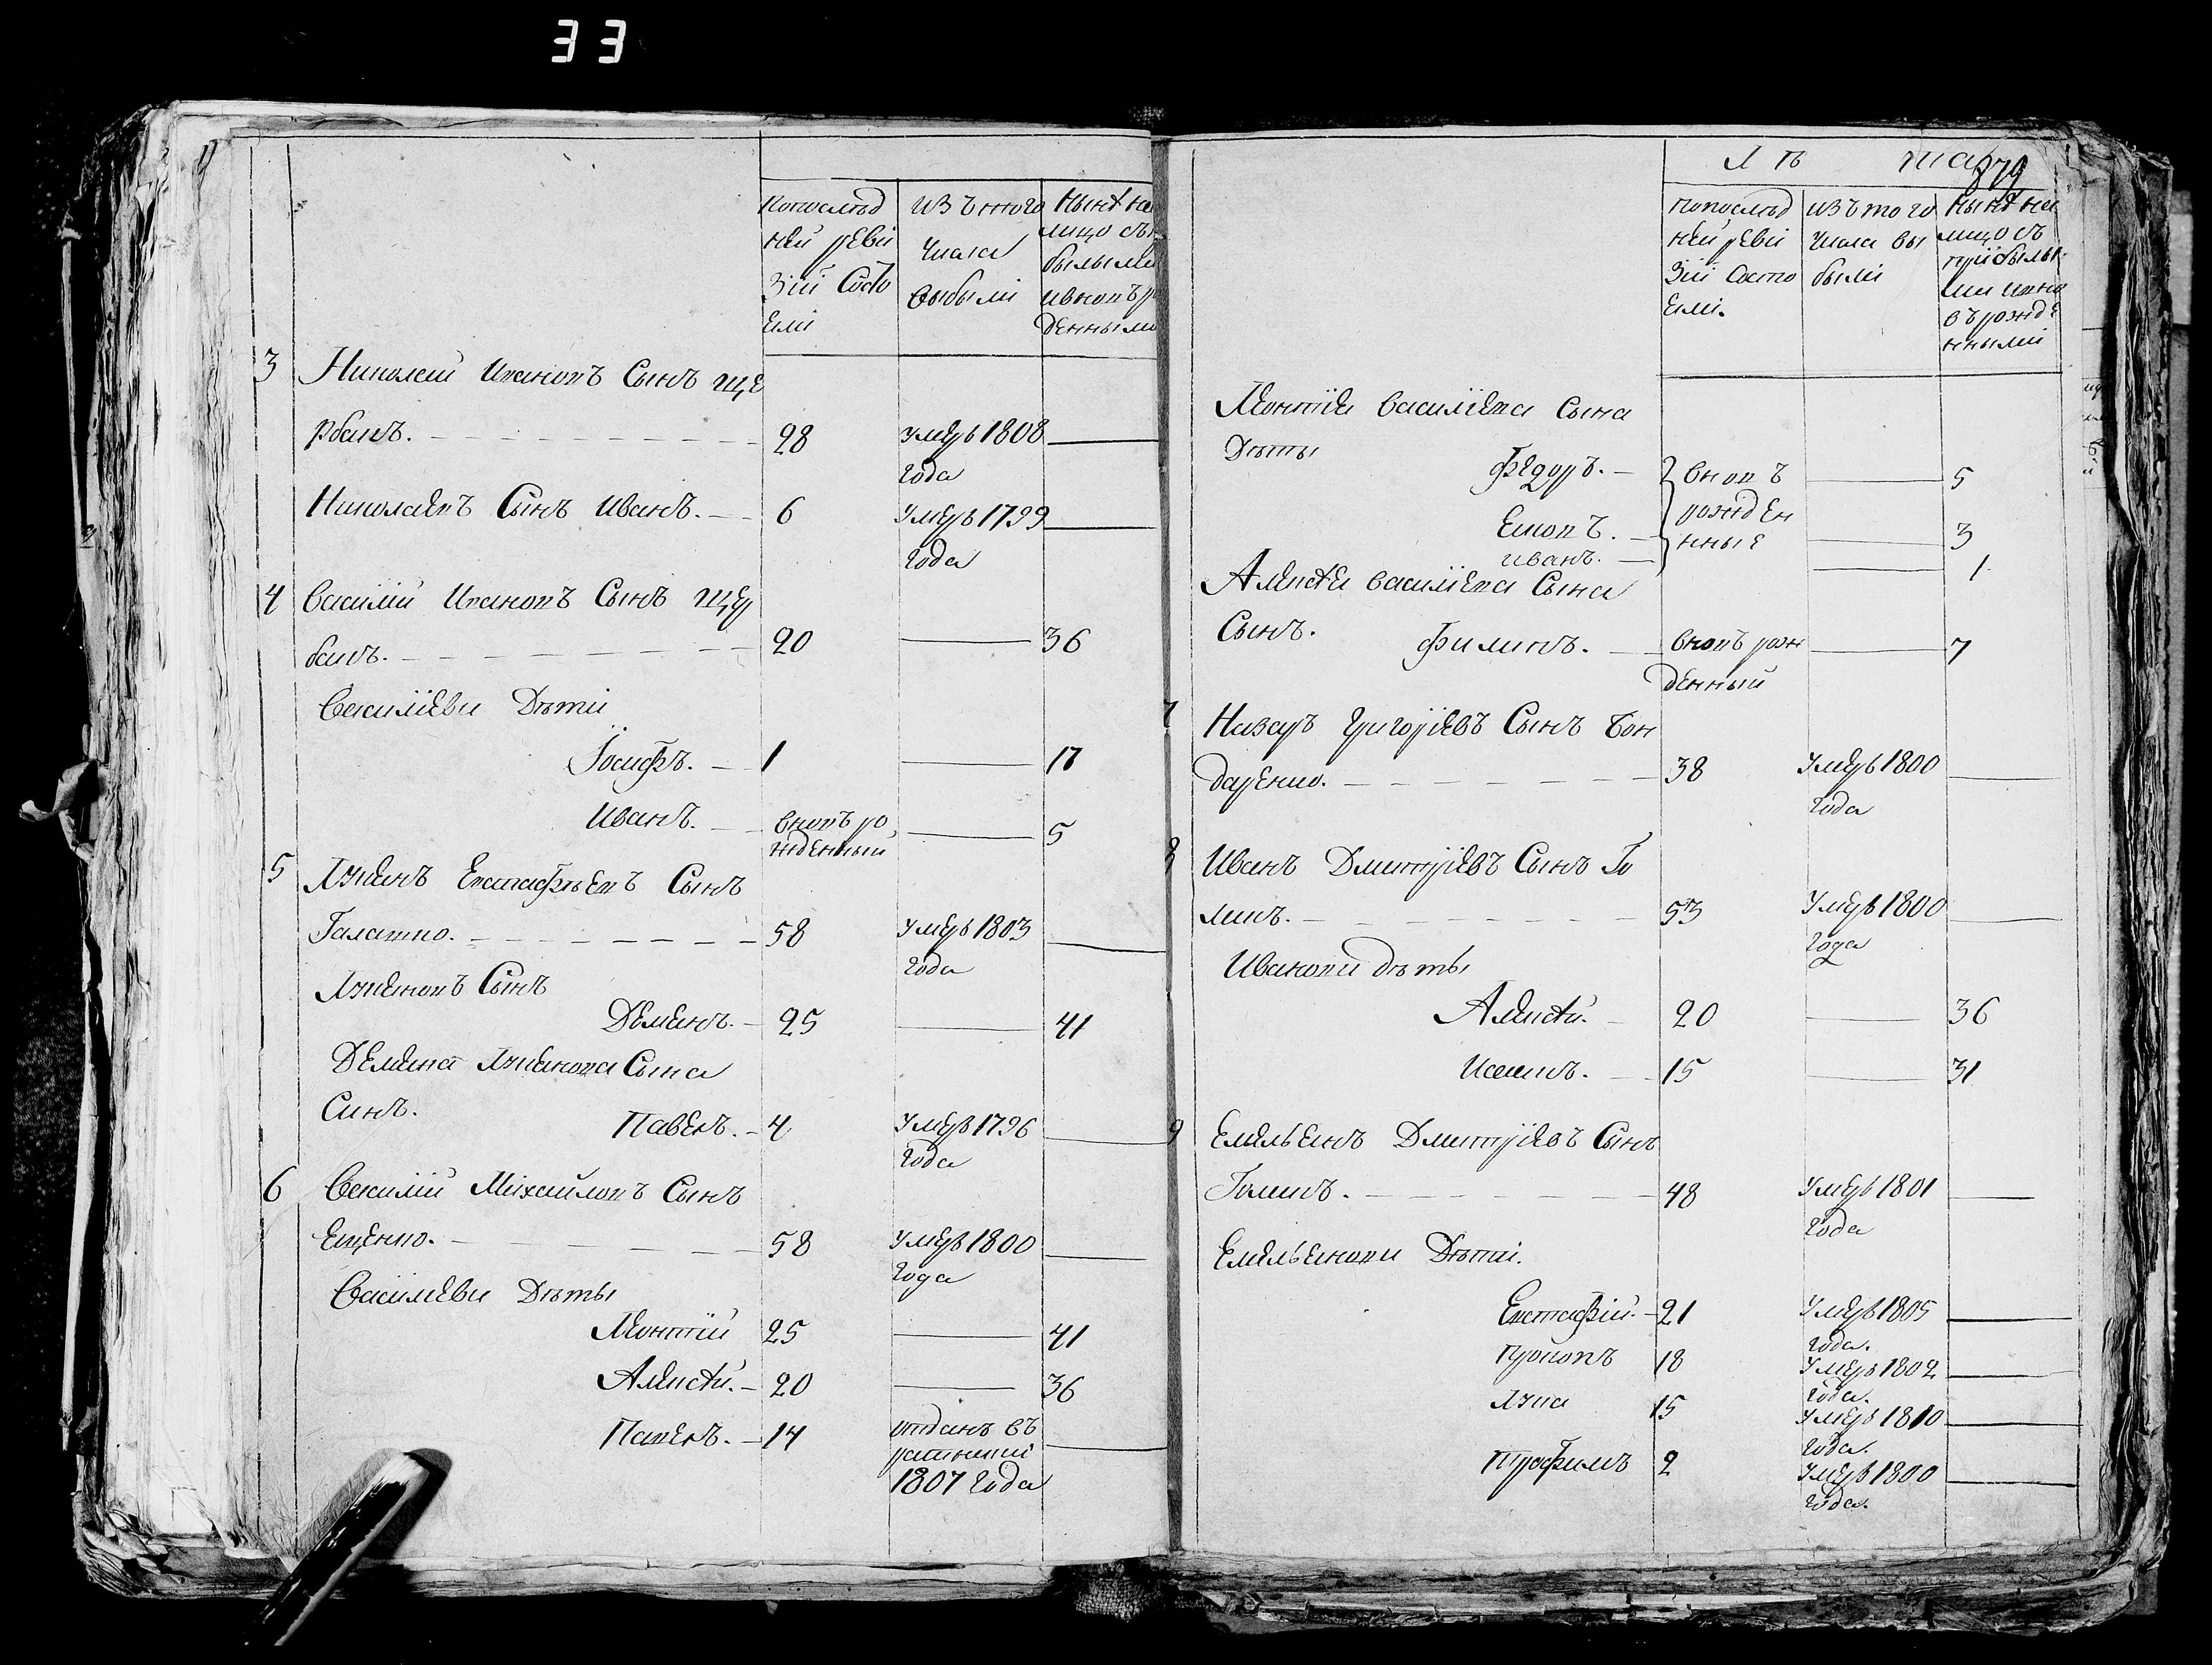 33
Попослѣд
ней реви
зіи Состо
яли
изъ того
Числа
выбыли
Нынѣ на
лицо съ
былыми
ивновь ро
жденными
3 Николай Ивановъ Сынъ Ще
рбакъ. 28 умеръ 1808
года
Николаевъ Сынъ Иванъ. 6 Умеръ 1799
года
4 Василій Ивановъ Сынъ Щер
бакъ. 20 36
Василіеви Дѣти
Іосифъ. 1 17
Иванъ. вновь ро 5
жденный
5 Лукянъ Евстафьевъ Сынъ
Галатко. 58 Умеръ 1803
года
Лукяновъ Сынъ
Демянъ. 25 41
Демяна Лукянова Сына
Синъ.
Павелъ. 4 Умеръ 1796
года
6 Василій Михайловъ Сынъ
Ещенко. 58 Умеръ 1800
года
Василіеви Дѣты
Леонтій 25 41
Алексѣй. 20 36
Павелъ. 14 отданъ въ
1807 года
879
Лѣ та
попослѣд
ней реви
зіи Состо
яли.
изъ того
Числа вы
были
Нынѣ на
лицо съ
прибылы
ми ивно
въ рожде
нными
Леонтія Василіева Сына
Дѣты
Федоръ. вновъ 5
рожден
Яковъ. нные 3
иванъ. 1
Алексѣя Василіева Сына
Сынъ. Филипъ. вновъ рож 7
денный
7 Назаръ Григоріевъ Сынъ Бон
даренко. 38 Умеръ 1800
года
8 Иванъ Дмитріевъ Сынъ Го
ликъ. 53 Умеръ 1800
года
Иванови дѣты
Алексѣй. 20 36
Исакъ. 15 31
9 Емельянъ Дмитріевъ Сынъ
Голикъ. 48 Умеръ 1801
года
Емельянови Дѣти.
Евстафій. 21 Умеръ 1805
года.
Прокопъ 18 Умеръ 1802
года.
Лука 15 Умеръ 1810
года.
Трофимъ 2 Умеръ 1800
года.